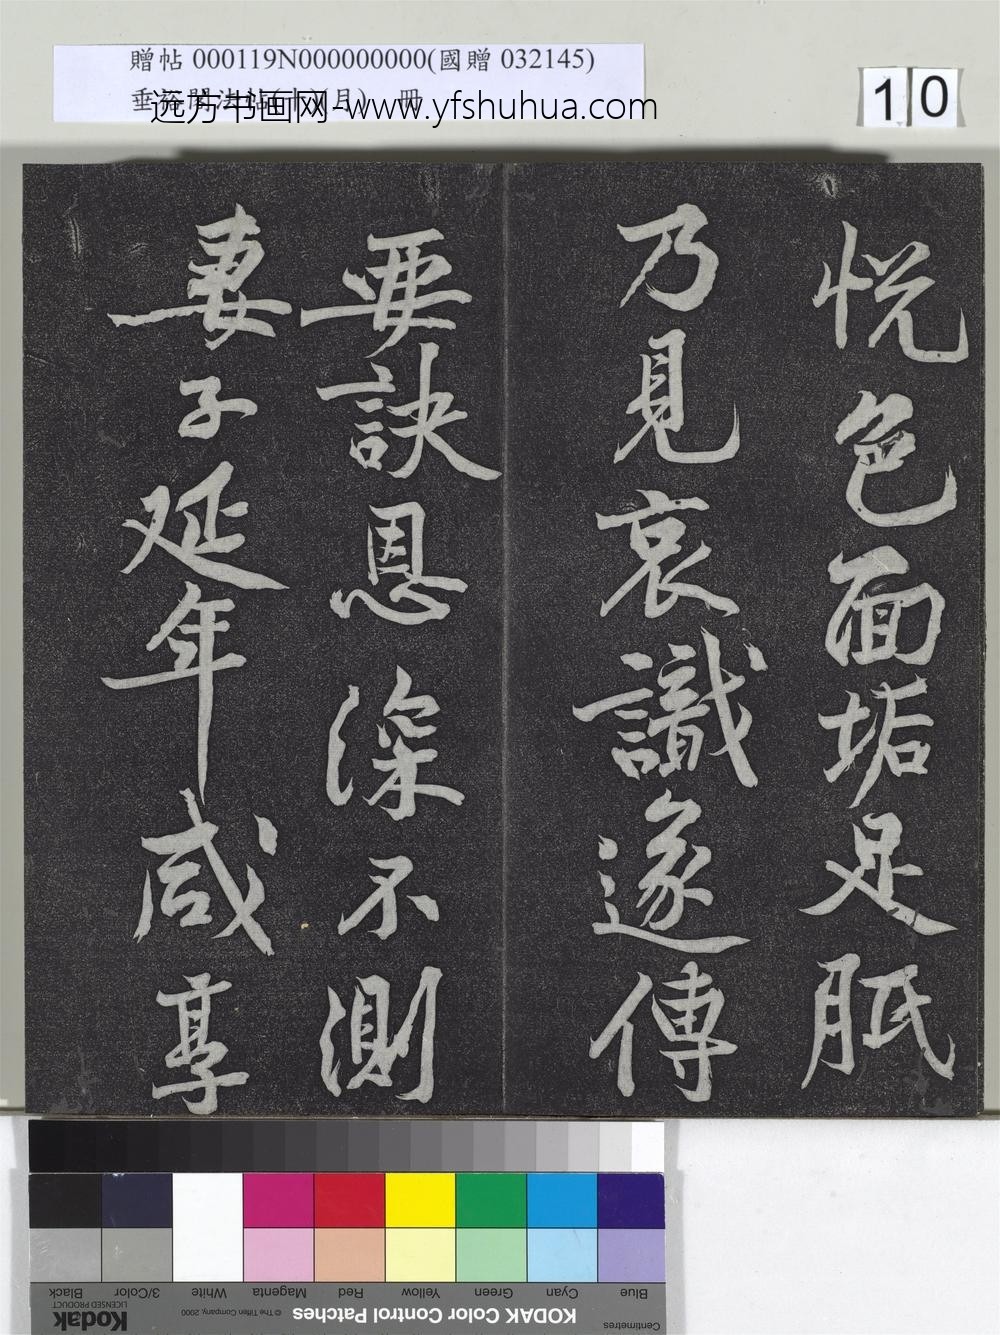 贈帖 000119N000000000(國贈 032145)
远方书画网-www.yfshuhua.com
10
悦色面垢足胝
乃見哀識遂傳
要訣恩深不測
妻子延年咸享
Blue
Cyan
Green
Yellow
Red
Magenta
White
3/Color
Black
Centimetres
KODAK Color Control Patches
© The Tiffen Company, 2000
Kodak
LICENSED PRODUCT